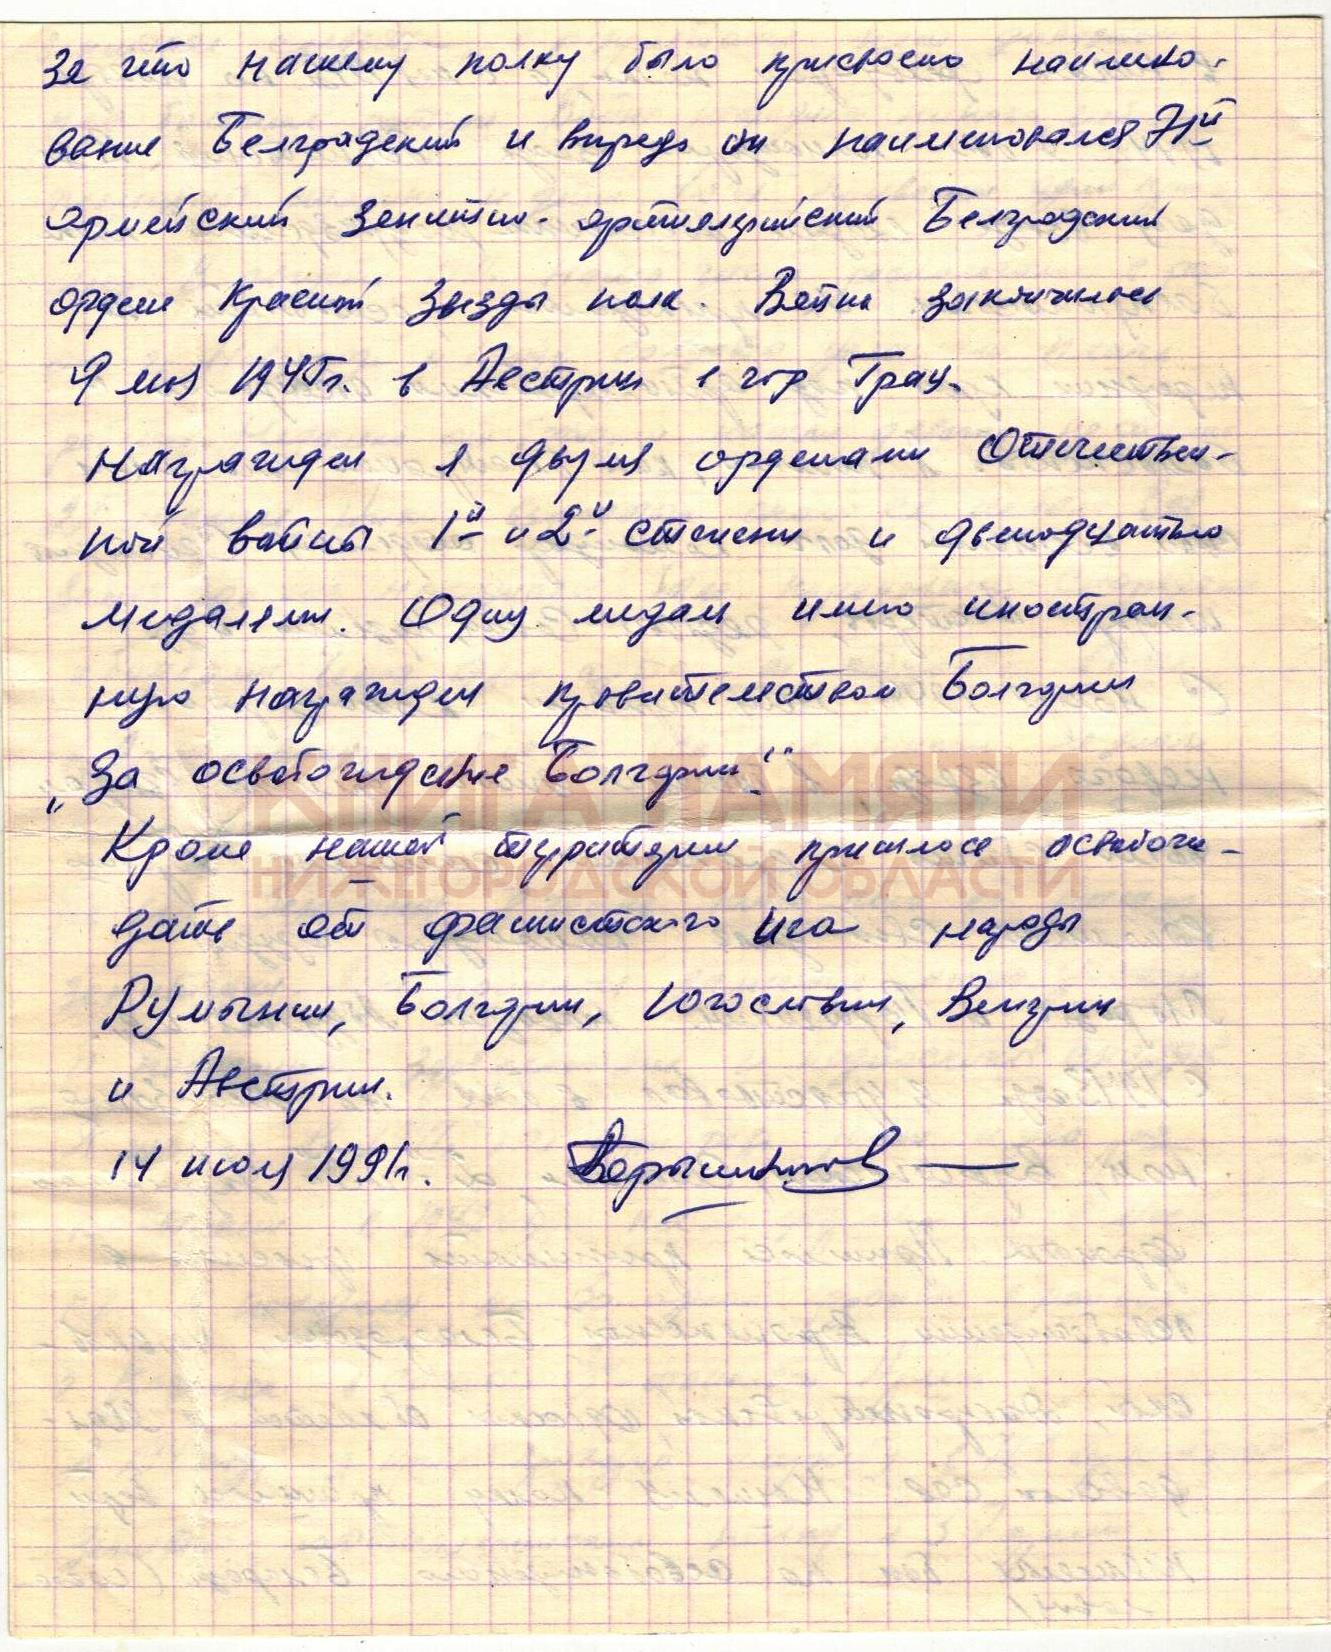 За что нашему полку было присвоено наимено-
вание Белградский и впредь он наименовался 71й
армейский зенитно-артиллерийский Белградский
орден Красной Звезды полк. Война закончилась
9 мая 1945г. в Австрии в гор Грац.
Награжден я двумя орденами Отечествен-
ной войны 1й и 2й степени и двенадцатью
медалями. Одну медаль имею иностран-
ную награжден правительством Болгарии
„За освобождение Болгарии"
КНИГА ПАМЯТИ
Кроме нашей территории пришлось освобож-
НИЖЕГОРОДСКОЙ ОБЛАСТИ
дать от фашистского ига народы
Румынии, Болгарии, Югославии, Венгрии
и Австрии.
14 июля 1991г.